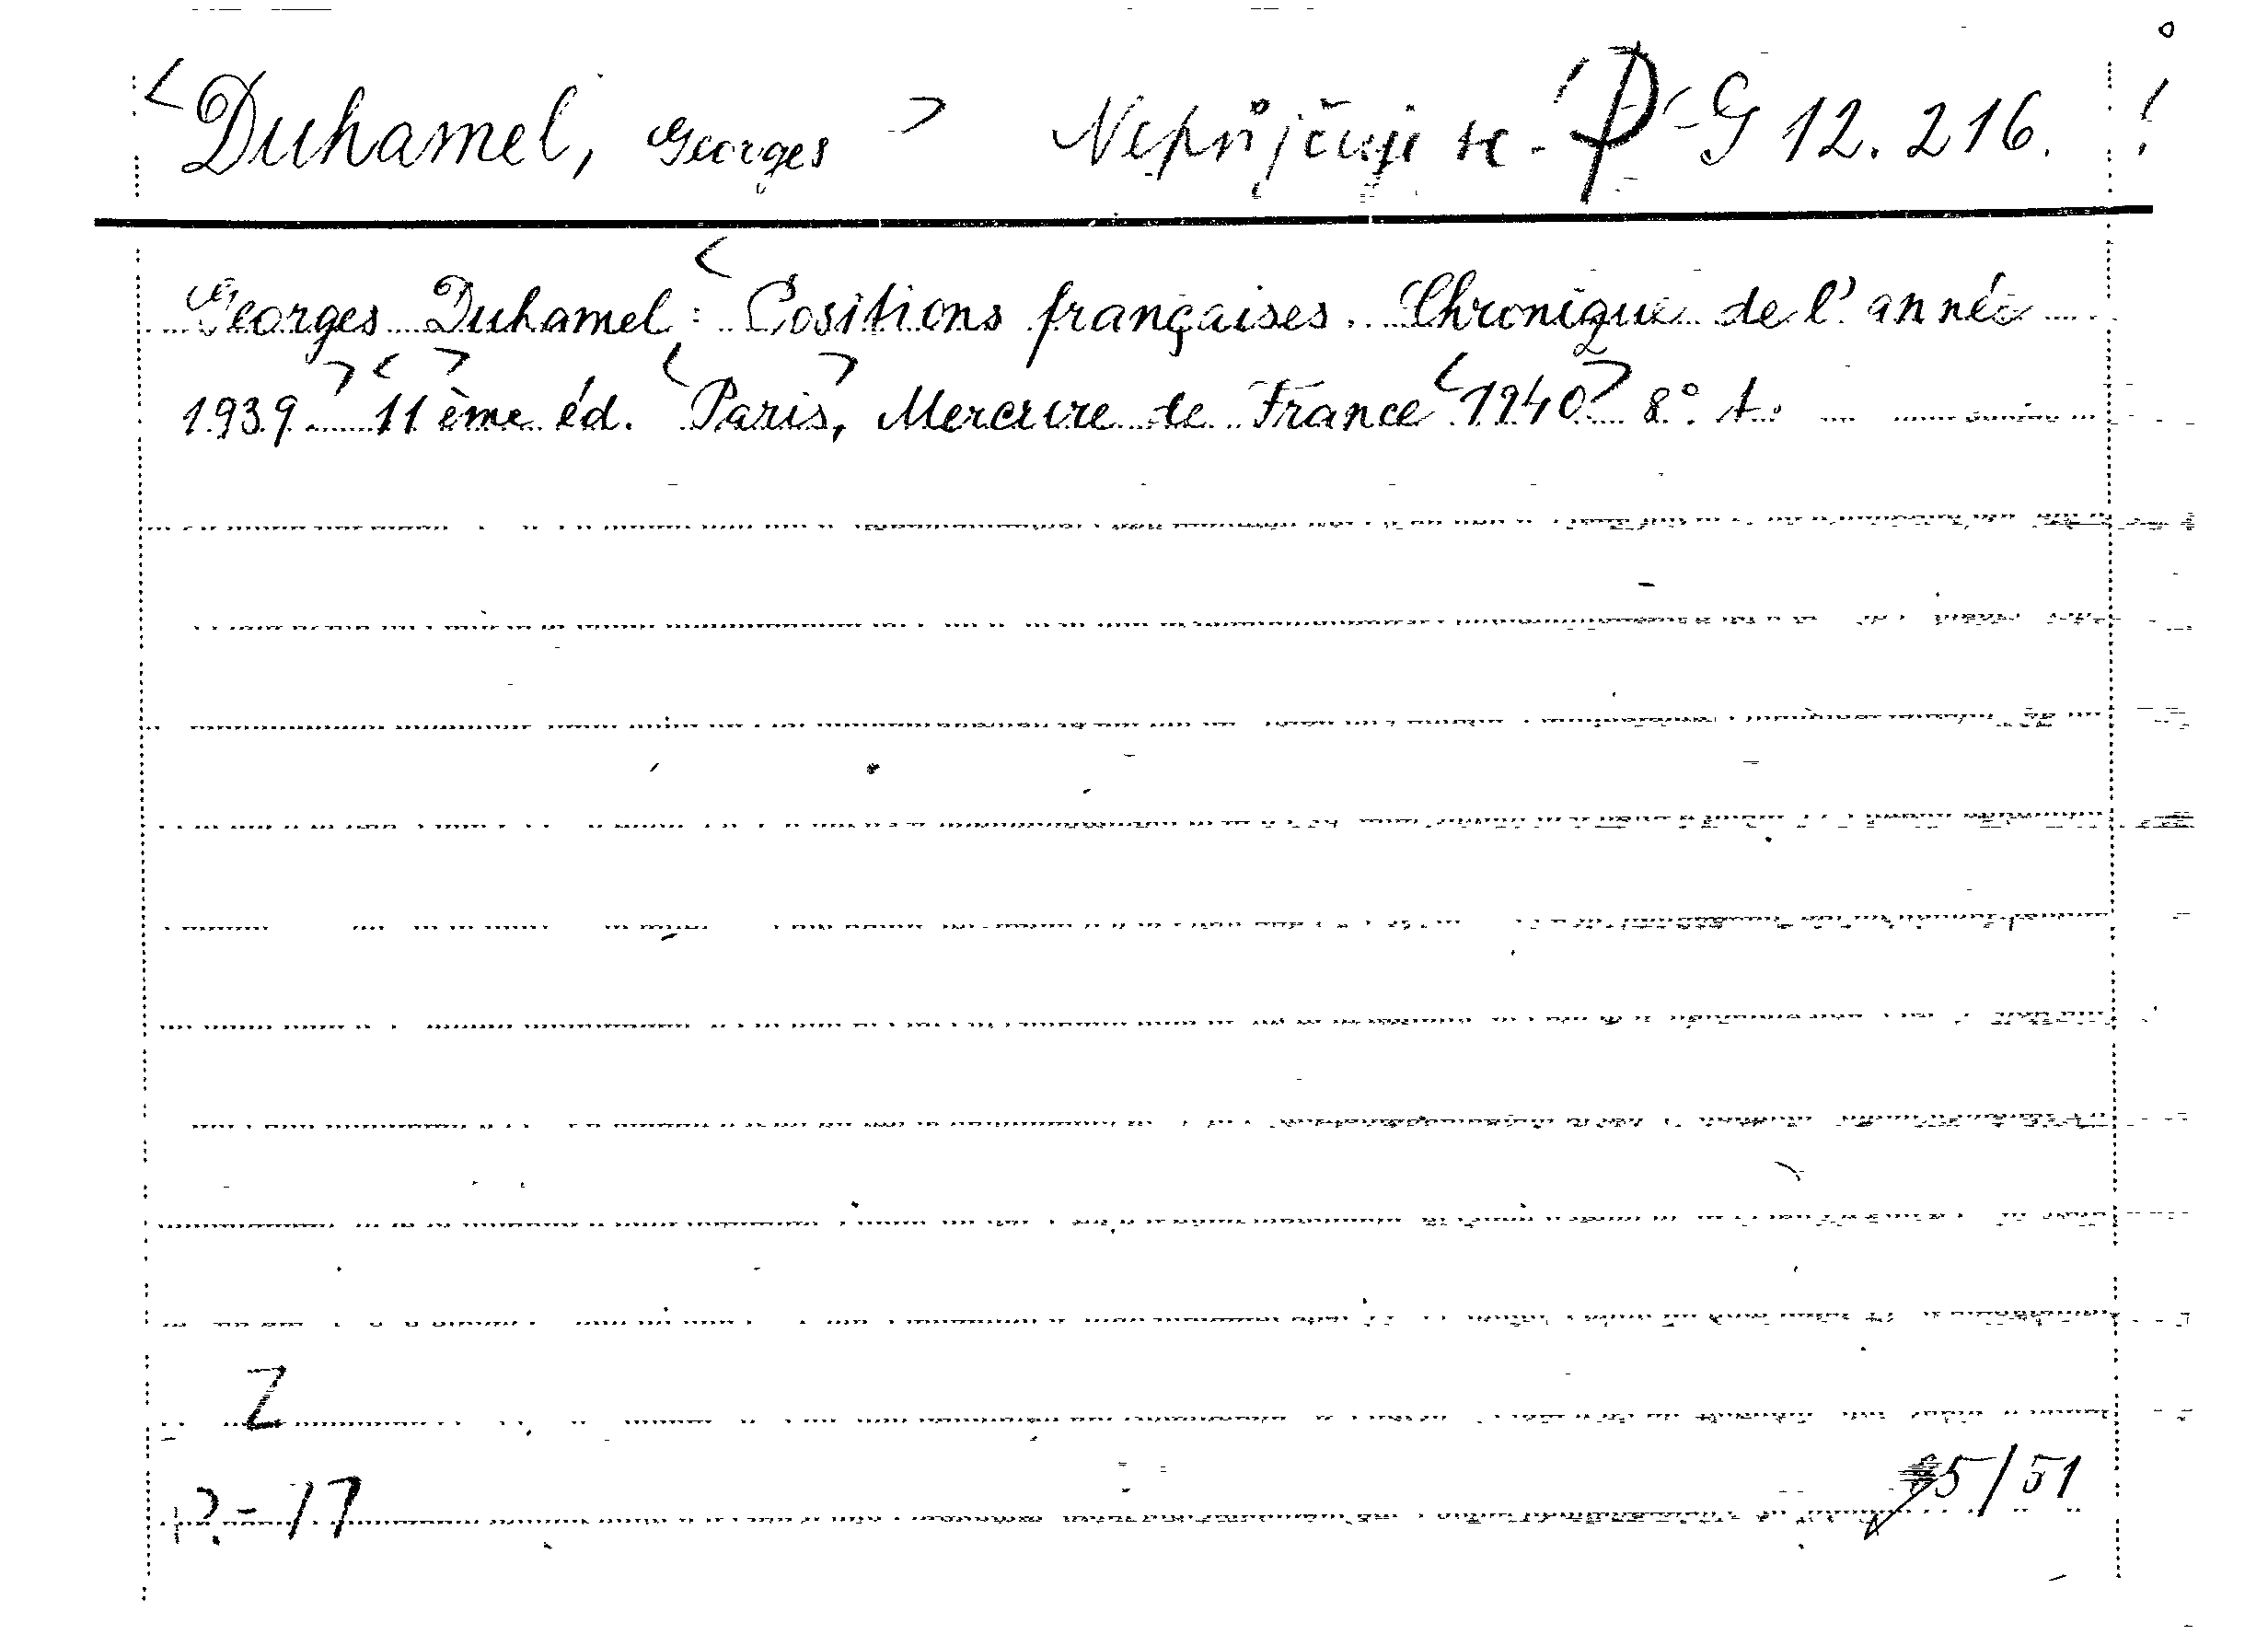 <Duhamel, Georges> Nepůjčuje se. P-G 12.216.
Georges Duhamel: <Positions françaises. Chronique de l'année
1939.> <11>ème éd. <Paris>, Mercure de France <1940> 8°. A.
Z
+?-17
55/51